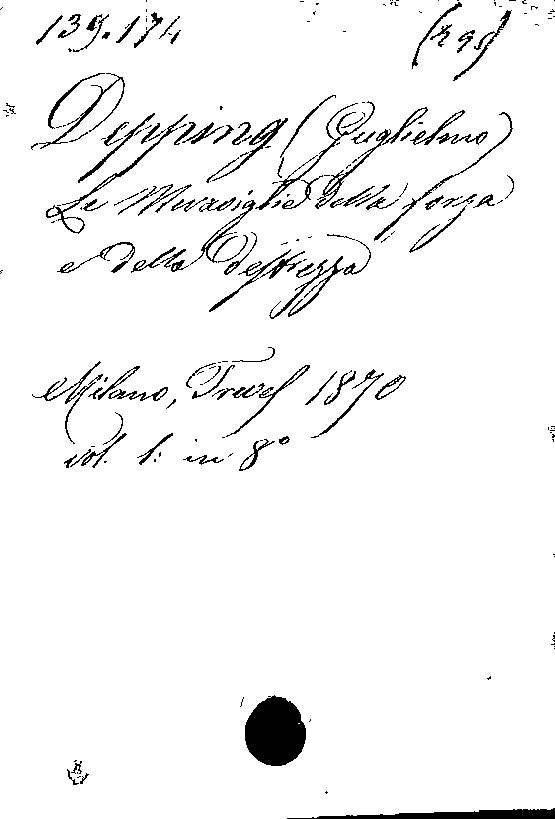 139.174
Depping (Guglielmo)
Le Meraviglie della forza
e della destrezza
Milano, Treves 1870
vol. 1: in 8º